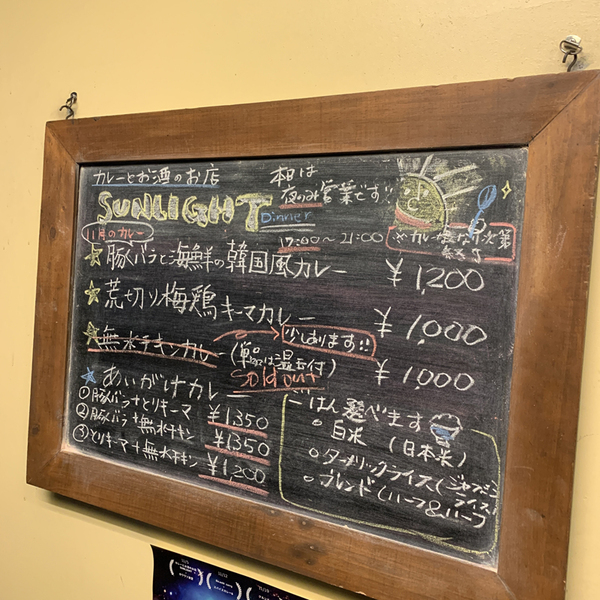 カレーとお酒のお店
SUNLIGHT
Dinner
本日は
夜のみ営業です!!
17:00〜21:00
※カレー無なり次第
終了
11月のカレー
☆豚バラと海鮮の韓国風カレー ¥1,200
☆荒切り梅鶏キーマカレー ¥1,000
☆無水チキンカレー ¥1,000
少しあります!!
(単品は温玉付)
Sold out
☆あいがけカレー
①豚バラ+とりキーマ ¥1350
②豚バラ+無水チキン ¥1350
③とりキーマ+無水チキン ¥1,200
ごはん選べます
○白米 (日本米)
○ターメリックライス(ジャスミンライス)
○ブレンド(ハーフ&ハーフ